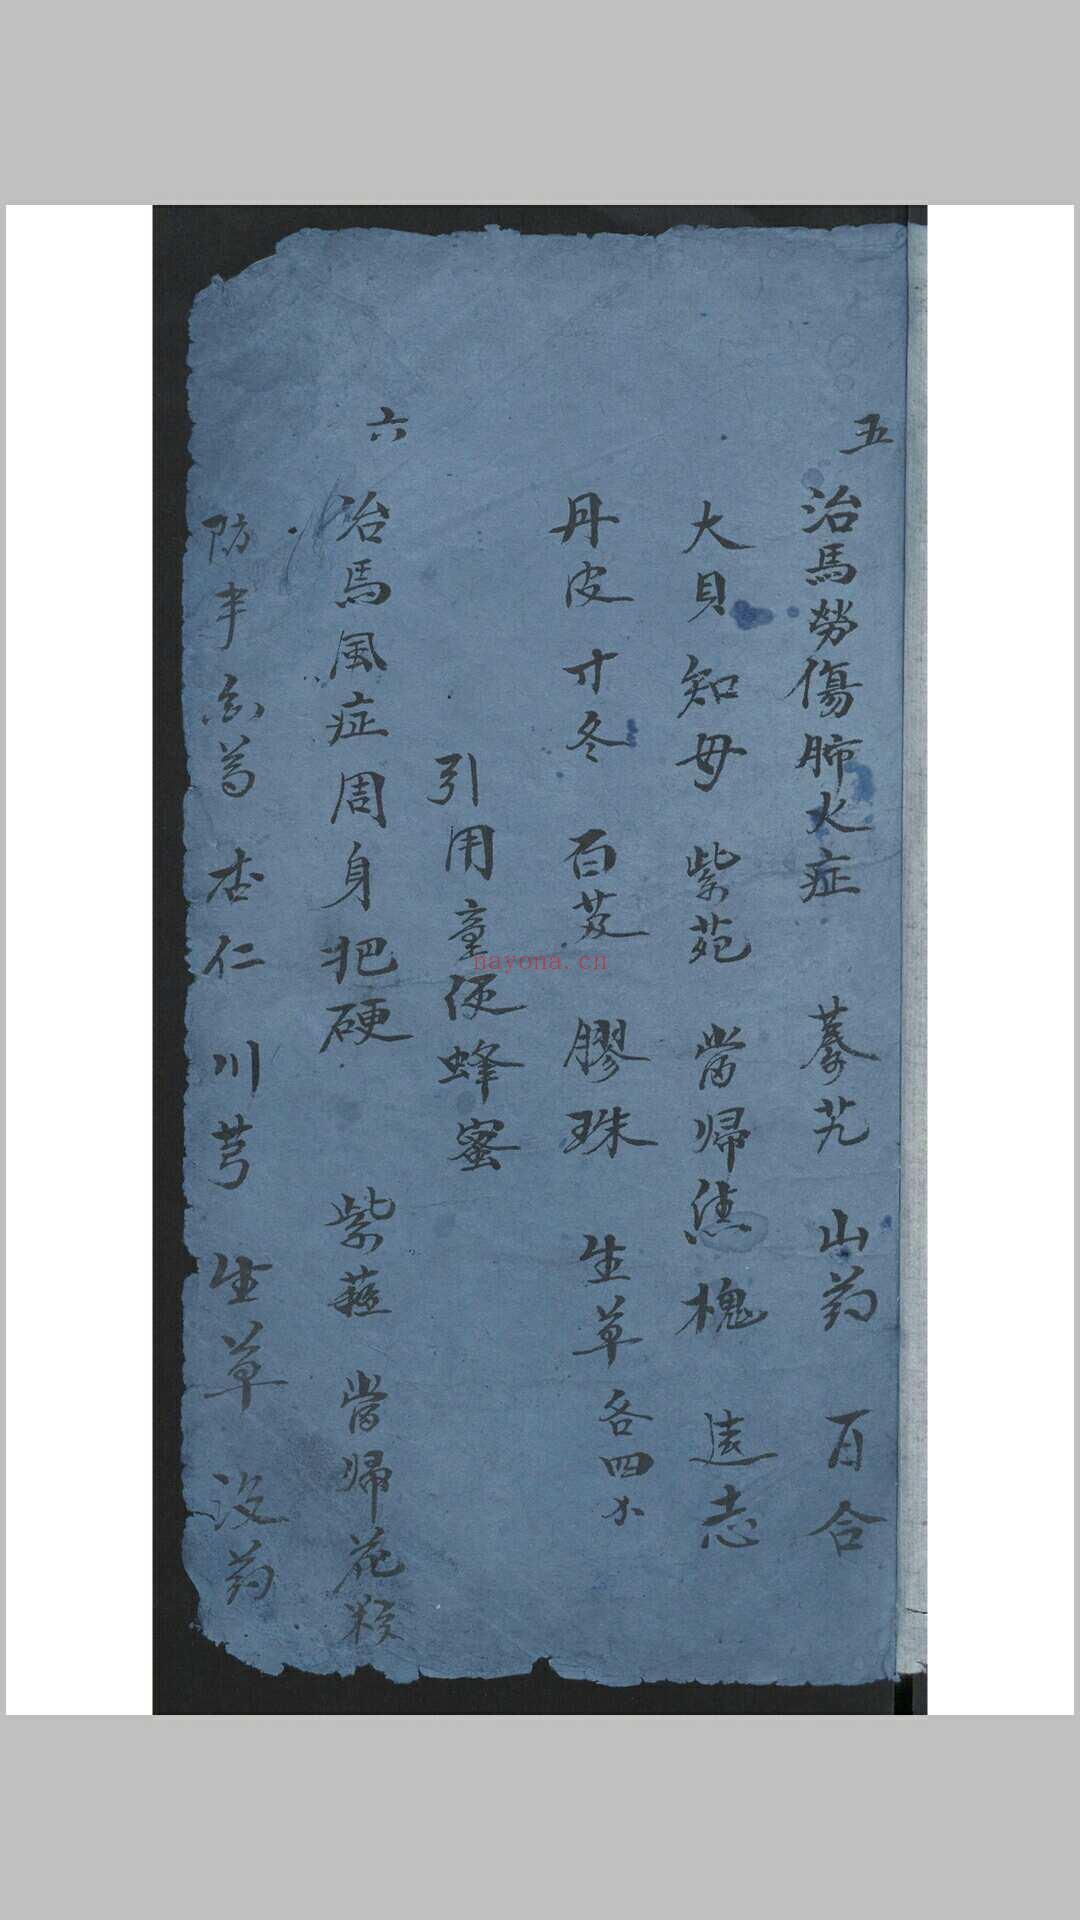 五
治馬勞傷肺火症 蓁艽 山药 百合
大貝 知母 紫苑 當歸 槐 遠志
丹皮 寸冬 百芨 膠珠 生草 各四
引用童便蜂蜜
六
治馬風症周身把硬 紫蘓 當歸 花粉
防 杏仁 川芎 生草 没药
nayona.cn